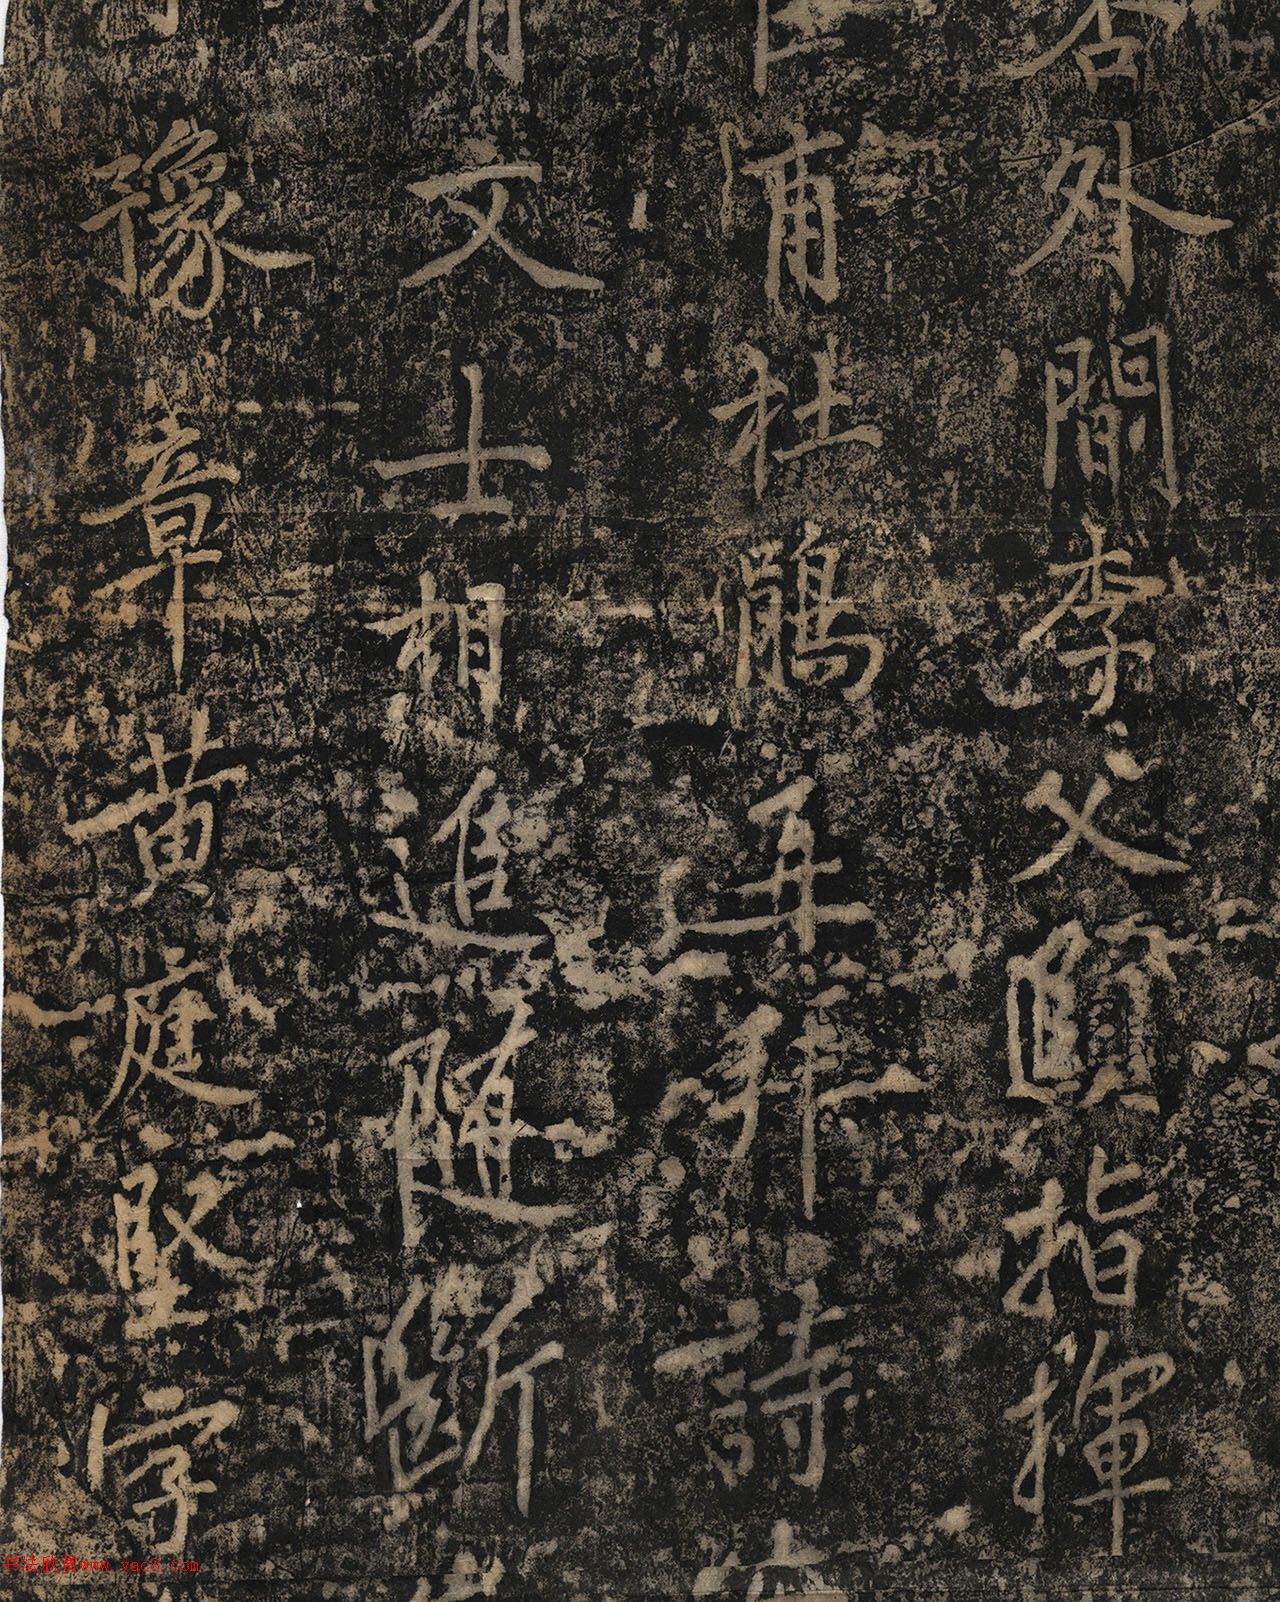 外間李父顛指揮
甫杜鵑再拜詩
有文士相追隨斷
豫章黃庭堅字
书法欣赏www.yac8.com